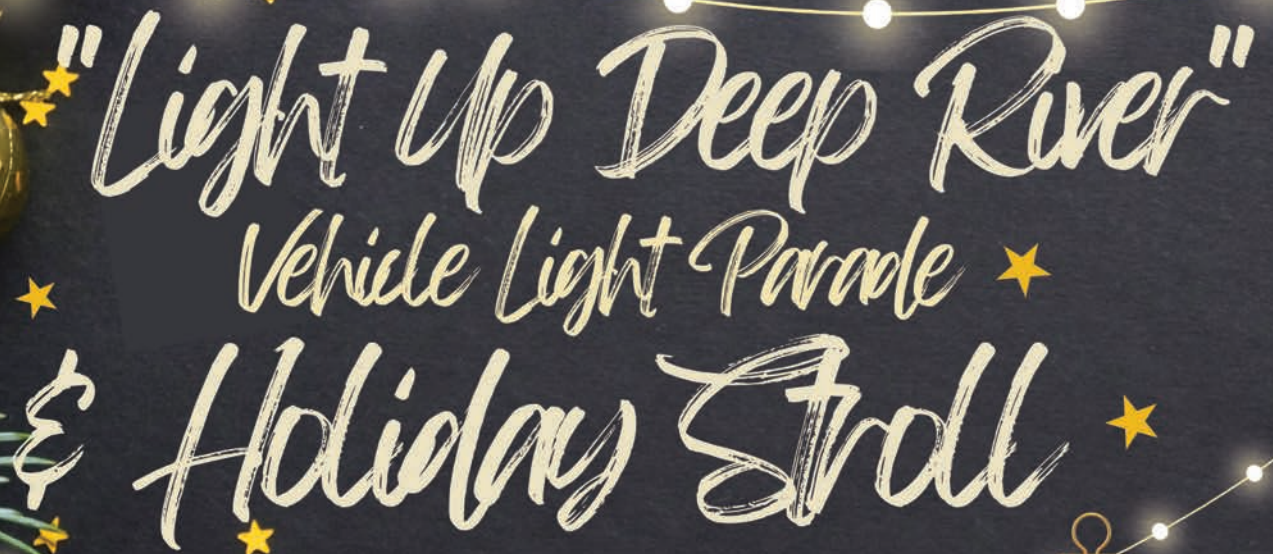 "Light Up Deep River"
Vehicle Light Parade
& Holiday Stroll